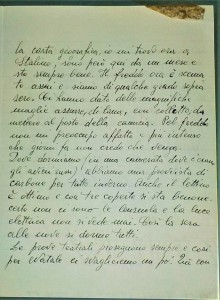 la carta geografica, io mi trovo ora a
Stalino, sono però qui da un mese e
sto sempre bene. Il freddo ora è scema
to assai e siamo di qualche grado sopra
zero. Ci hanno dato delle magnifiche
maglie azzurre, di lana, con colletto, da
mettere al posto della camicia. Pel freddo
non mi preoccupo affatto e più intenso
che giorni fa non credo che venga.
Dove dormiamo (in una camerata dove c'erano
gli) abbiamo una provvista di
carbone per tutto inverno. Anche il lettino
È ottimo e con tre coperte si sta benone.
certo non ci sono le lenzuola e la luce
elettrica non si vede mai. Così la sera
alle nove si dorme tutti.
Le prove teatrali proseguono sempre e così
per ci sbaglieremo un po'. Qui con